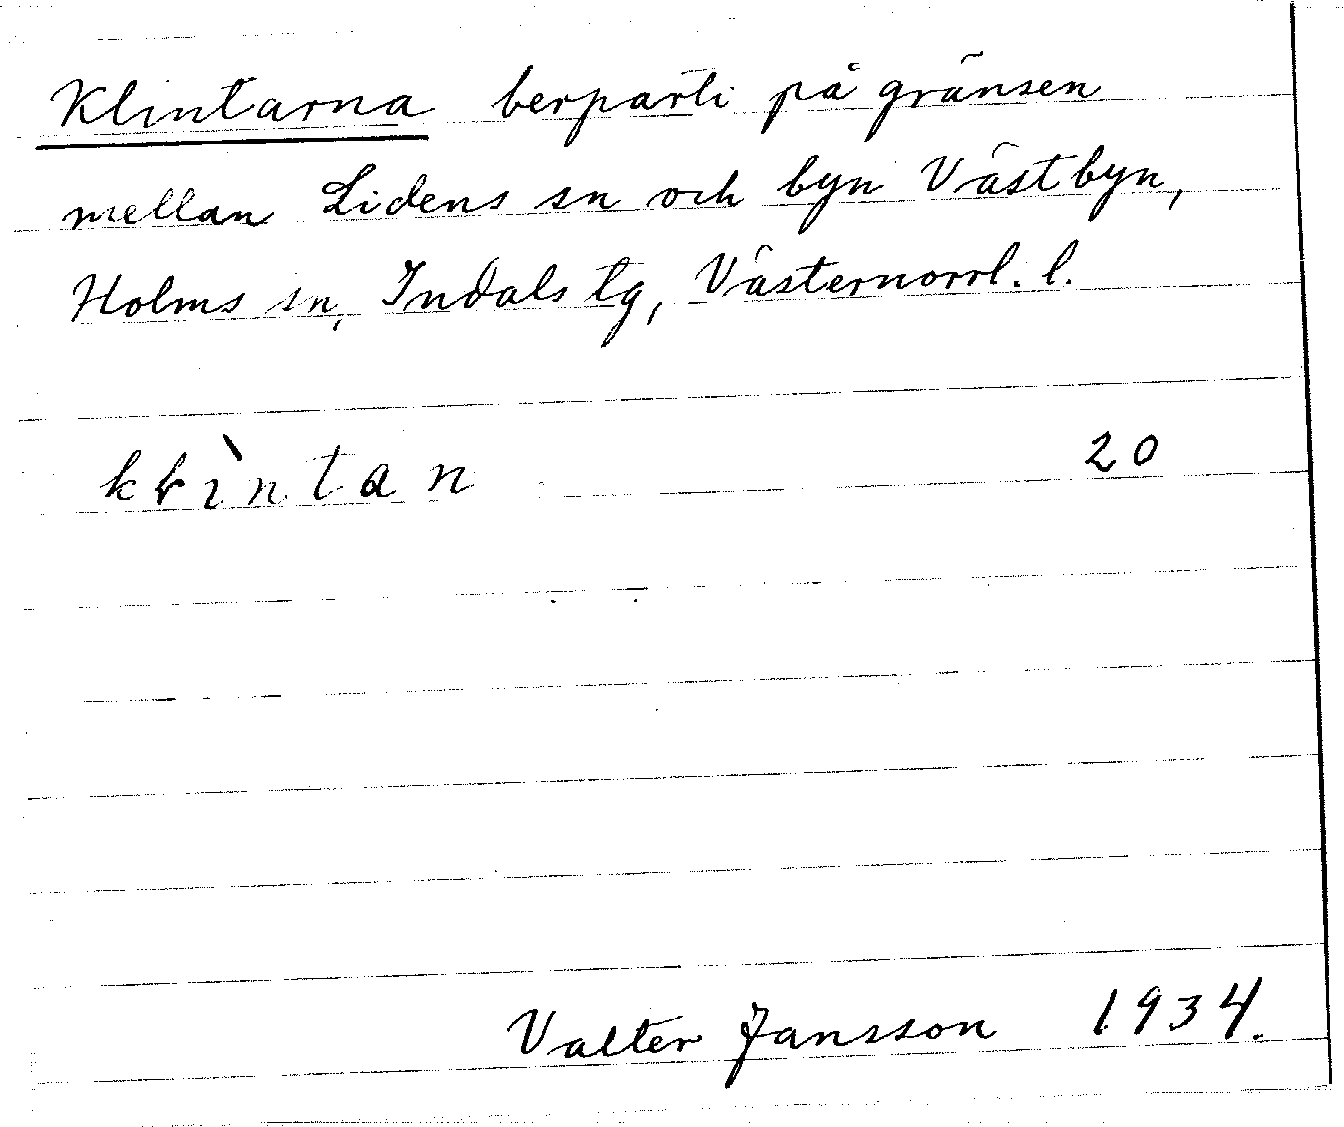 Klintarna berparti på gränsen
mellan Lidens sn och byn Västbyn,
Holms sn, Indals tg, Västernorrl. l.
klìntan 20
Valter Jansson 1934.